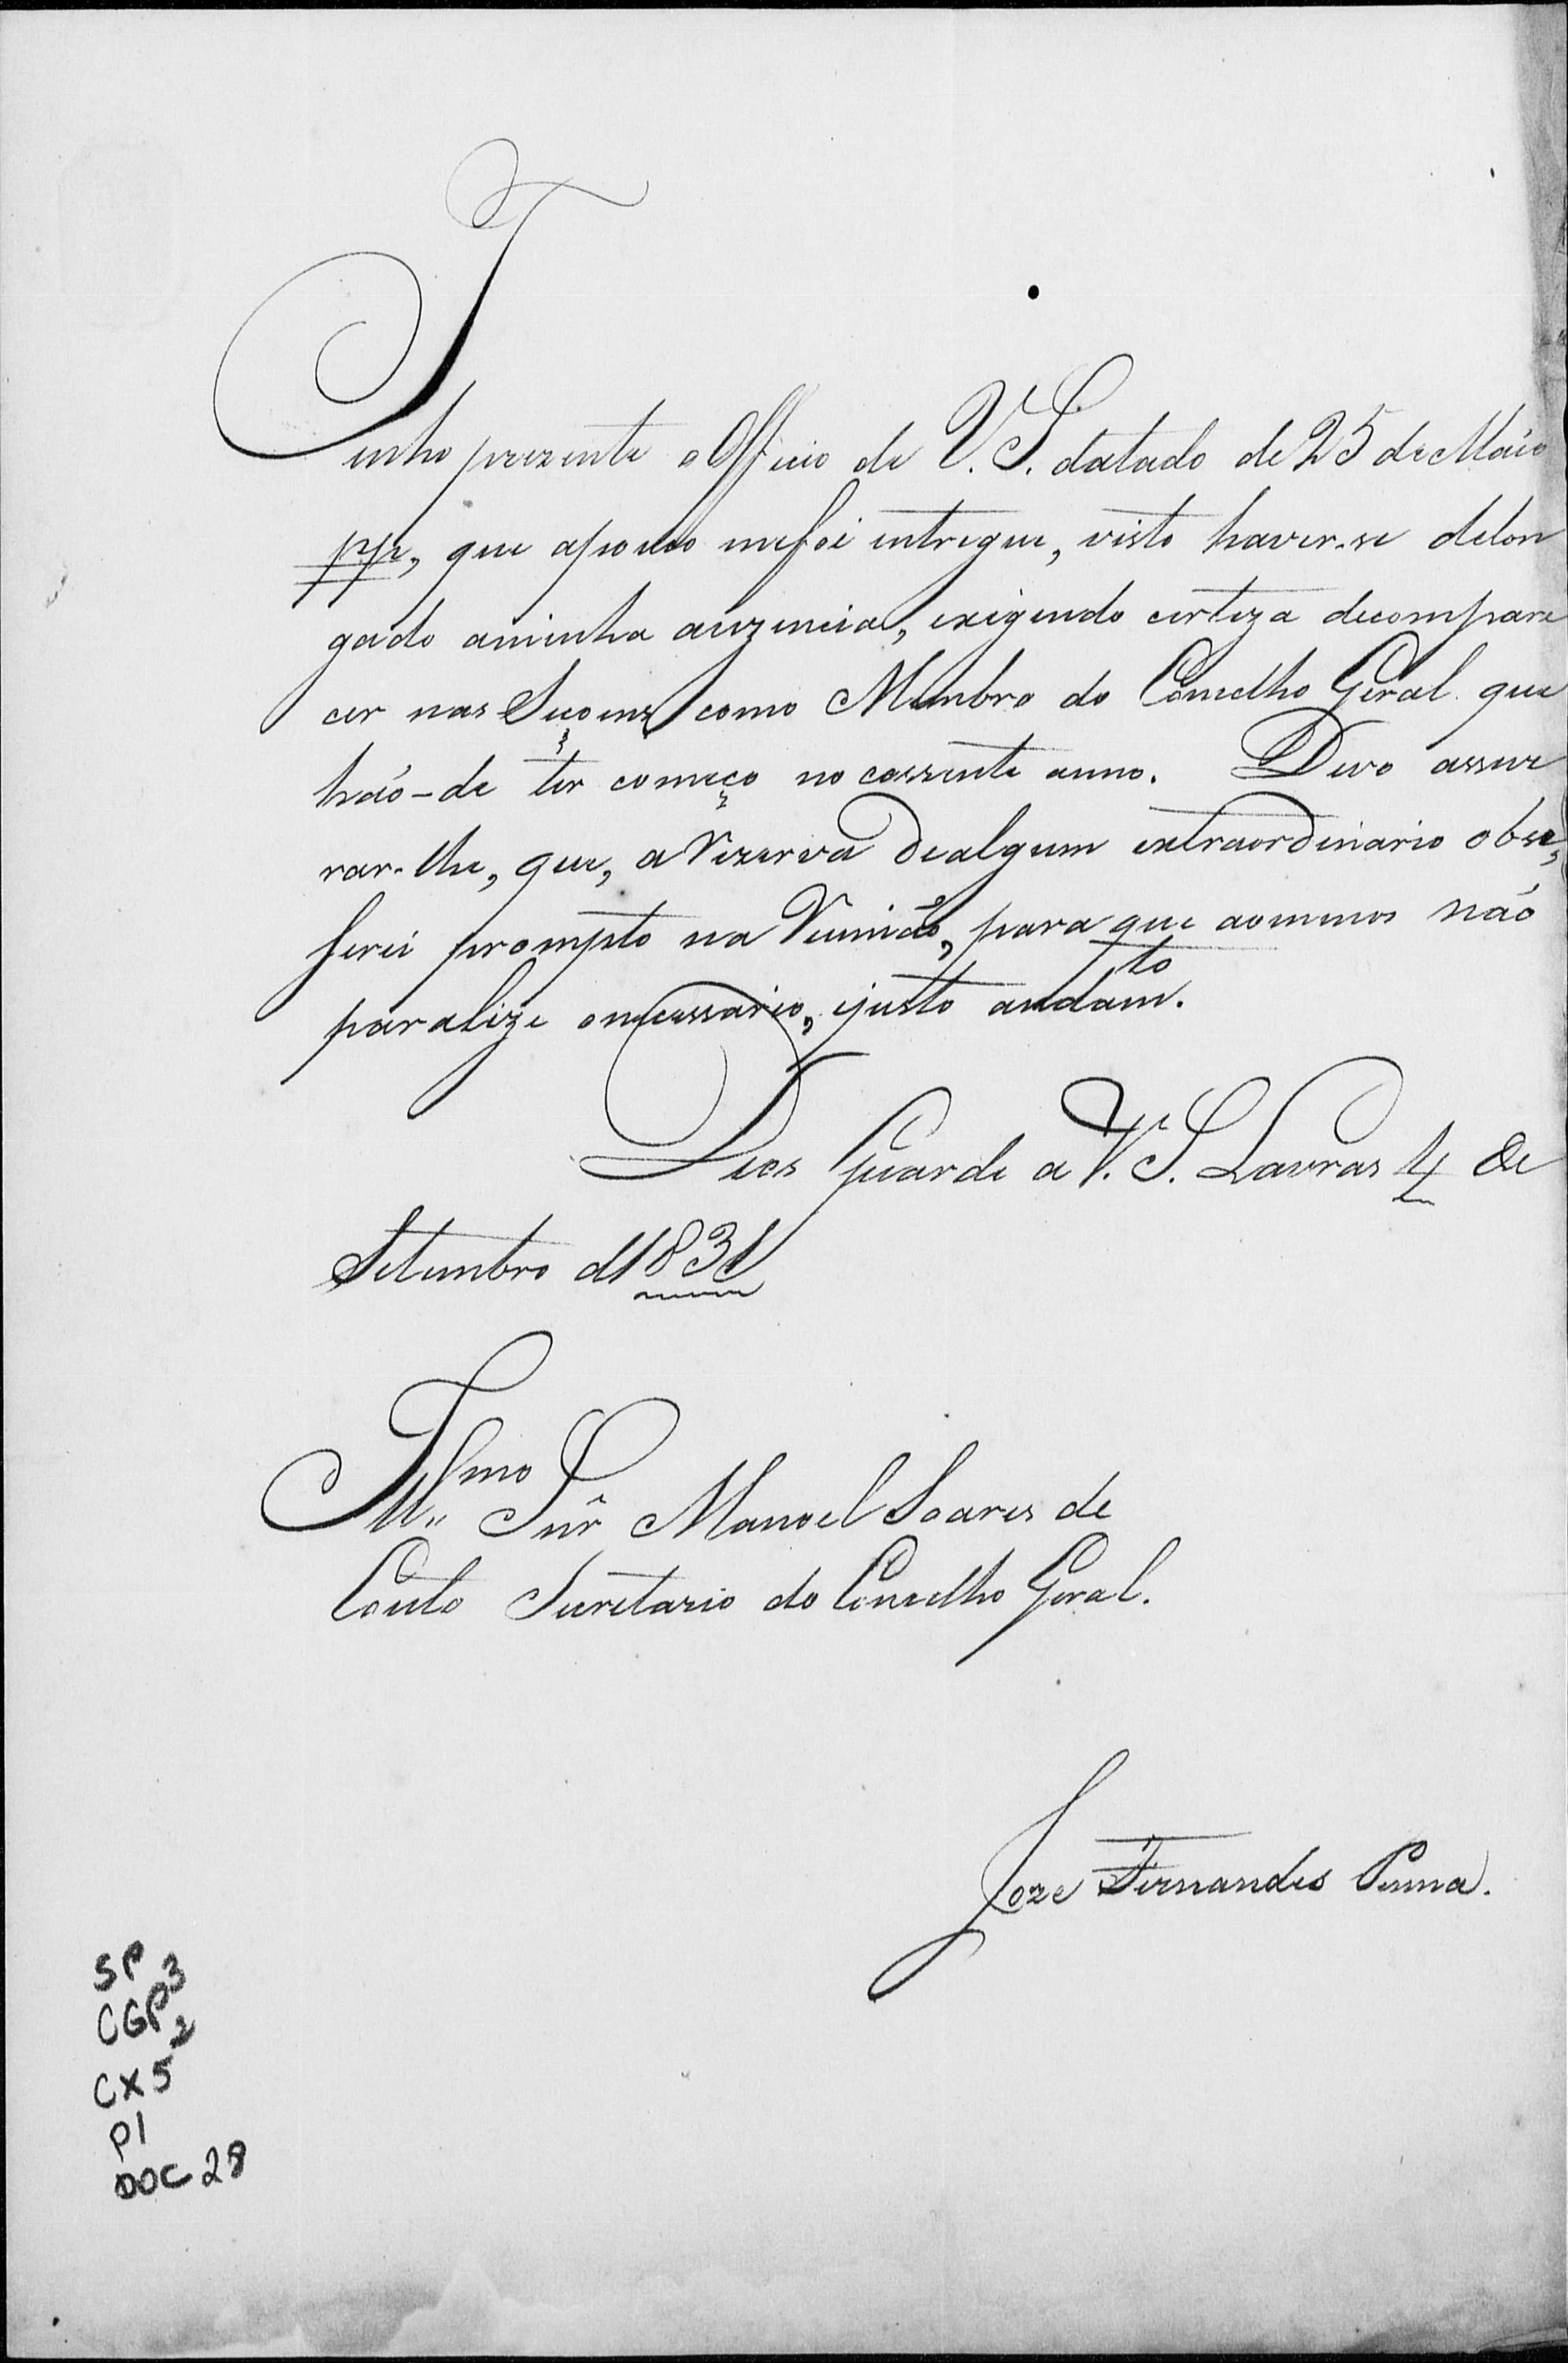 Tenho prezente o Officio de V. S. datado de 25 de Máio
pp., que apouco mefoi entregue, visto haver-se delon
gado aminha auzencia, exigindo certeza decompare
cer nas como Membro do Conselho Geral que
háo-de ter começo no corrente anno. Devo assive
rar-lhe, que, a Rezerva dealgum extraordinario obse,
serei prompto na Reuniáo, para que aomenos náo
paralize onecessario, ejusto andam.to
Deos Guarde a V. S. Lavras 4 de
Setembro d1831
Ill.mo Snr Manoel Soares de
Couto Secretario do Conselho Geral.
Joze Fernandes Penna.
SP
CGP3
2
CX5
P1
DOC 28